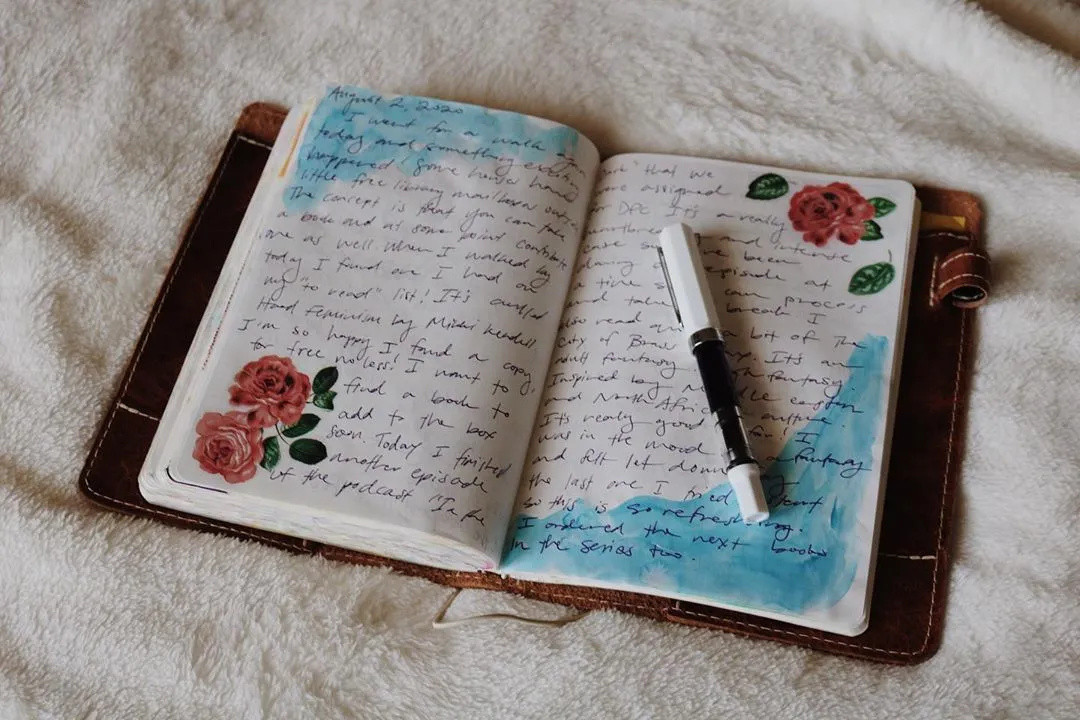 August 2, 2020
I went for a walk
today and something exciting
happened! Some houses have
little free library mailboxes
The concept is that you can take
a book and at some point contribute
one as well. When I walked by
today I found one I had on
my "to read" list! It's called
Hood Feminism by Mikki Kendall.
I'm so happy I found a copy,
for free no less! I want to
find a book to
add to the box
soon. Today I finished
another episode
of the podcast "In the
that we
assigned
for DPC. It's a really
and intense
case been
doing episode at
a time so can process
and take break I
also read a bit of The
City of Brass It's an
adult fantasy fantasy.
Inspired by eastern
and North African culture.
It's really good far! I
was in the mood a fantasy
and felt let down
the last one I tried
so this is so refreshing.
I ordered the next books
in the series too.